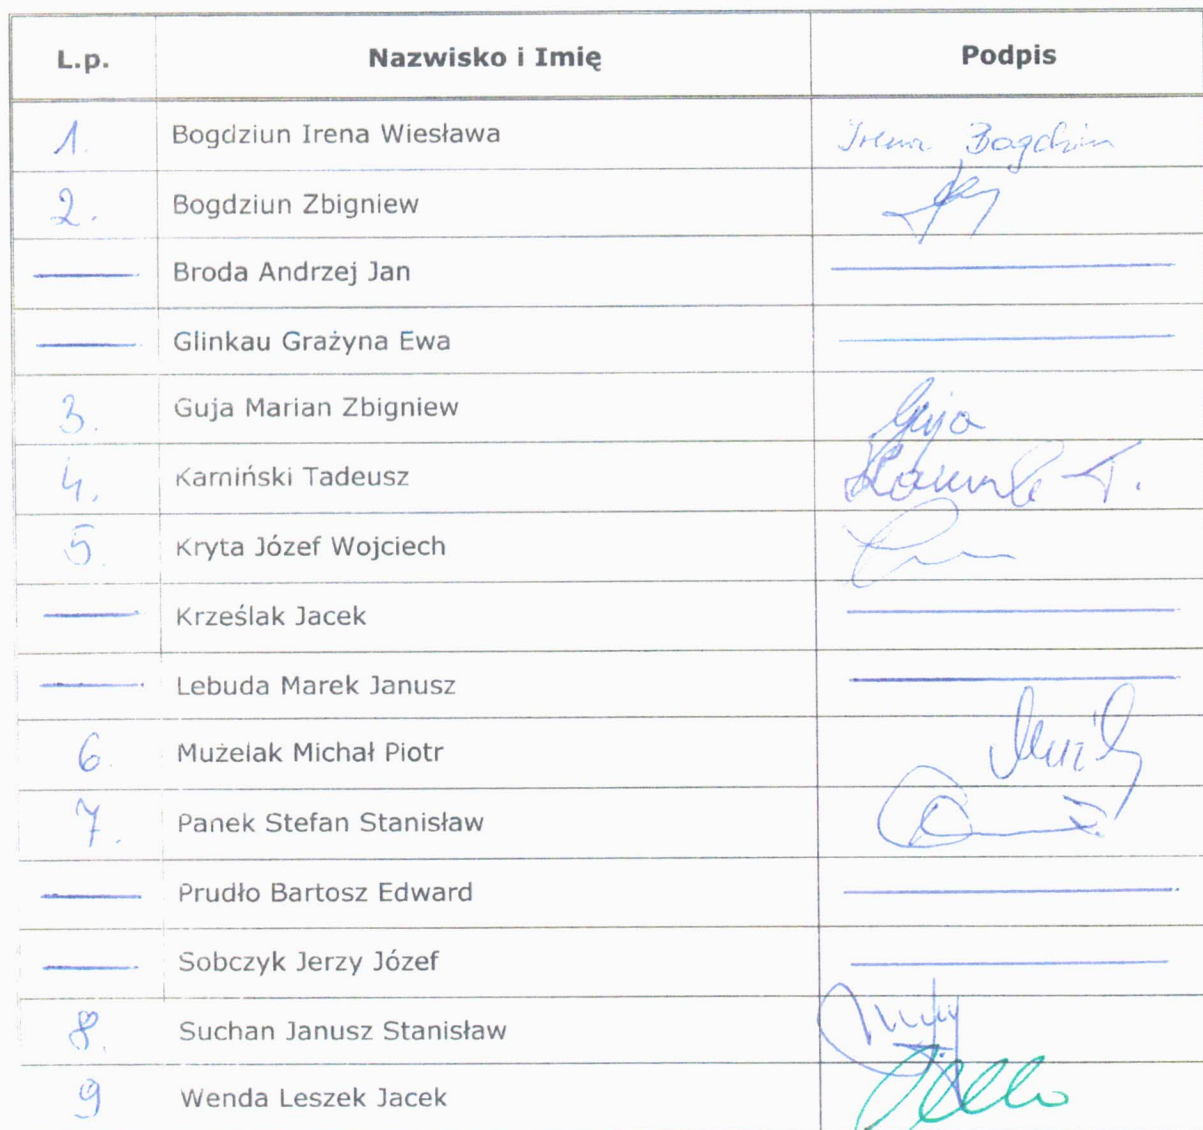 L.p. Nazwisko i Imię Podpis
1. Bogdziun Irena Wiesława Irena Bogdziun
2. Bogdziun Zbigniew
Broda Andrzej Jan
Glinkau Grażyna Ewa
3. Guja Marian Zbigniew Guja
4. Karniński Tadeusz
5. Kryta Józef Wojciech
Krześlak Jacek
Lebuda Marek Janusz
6. Mużelak Michał Piotr
7. Panek Stefan Stanisław
Prudło Bartosz Edward
Sobczyk Jerzy Józef
8. Suchan Janusz Stanisław
9 Wenda Leszek Jacek